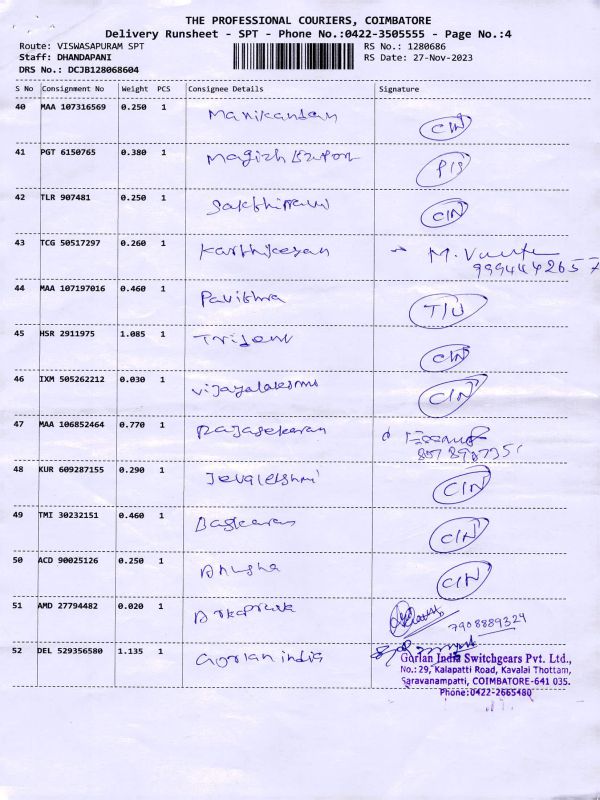 THE PROFESSIONAL COURIERS, COIMBATORE
Delivery Runsheet - SPT - Phone No.:0422-3505555 - Page No.:4
Route: VISWASAPURAM SPT RS No.: 1280686
Staff: DHANDAPANI RS Date: 27-Nov-2023
DRS No.: DCJB128068604
S No Consignment No Weight PCS Consignee Details Signature
40 MAA 107316569 0.250 1 Manikandan CIN
41 PGT 6150765 0.380 1
42 TLR 907481 0.250 1 CIN
43 TCG 50517297 0.260 1 Karthikeyan M.
44 MAA 107197016 0.460 1 Pavithra
45 HSR 2911975 1.085 1 Trident CIN
46 IXM 505262212 0.030 1 Vijayalakshmi CIN
47 MAA 106852464 0.770 1 Rajasekaran
48 KUR 609287155 0.290 1 CIN
49 TMI 30232151 0.460 1 Baskaran CIN
50 ACD 90025126 0.250 1 Anusha CIN
51 AMD 27794482 0.020 1
7908889324
52 DEL 529356580 1.135 1 Gorlan india
Gorlan India Switchgears Pvt. Ltd.,
No.: 29, Kalapatti Road, Kavalai Thottam,
Saravanampatti, COIMBATORE-641 035.
Phone:0422-2665480